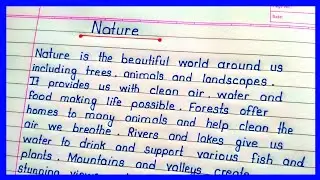 Nature
Nature is the beautiful world around us
including trees. animals and landscapes.
It provides us with clean air. water and
food making life possible. Forests offer
homes to many animals and help clean the
air we breathe. Rivers and lakes give us
water to drink and support various fish and
plants. Mountains and valleys create
stunning views